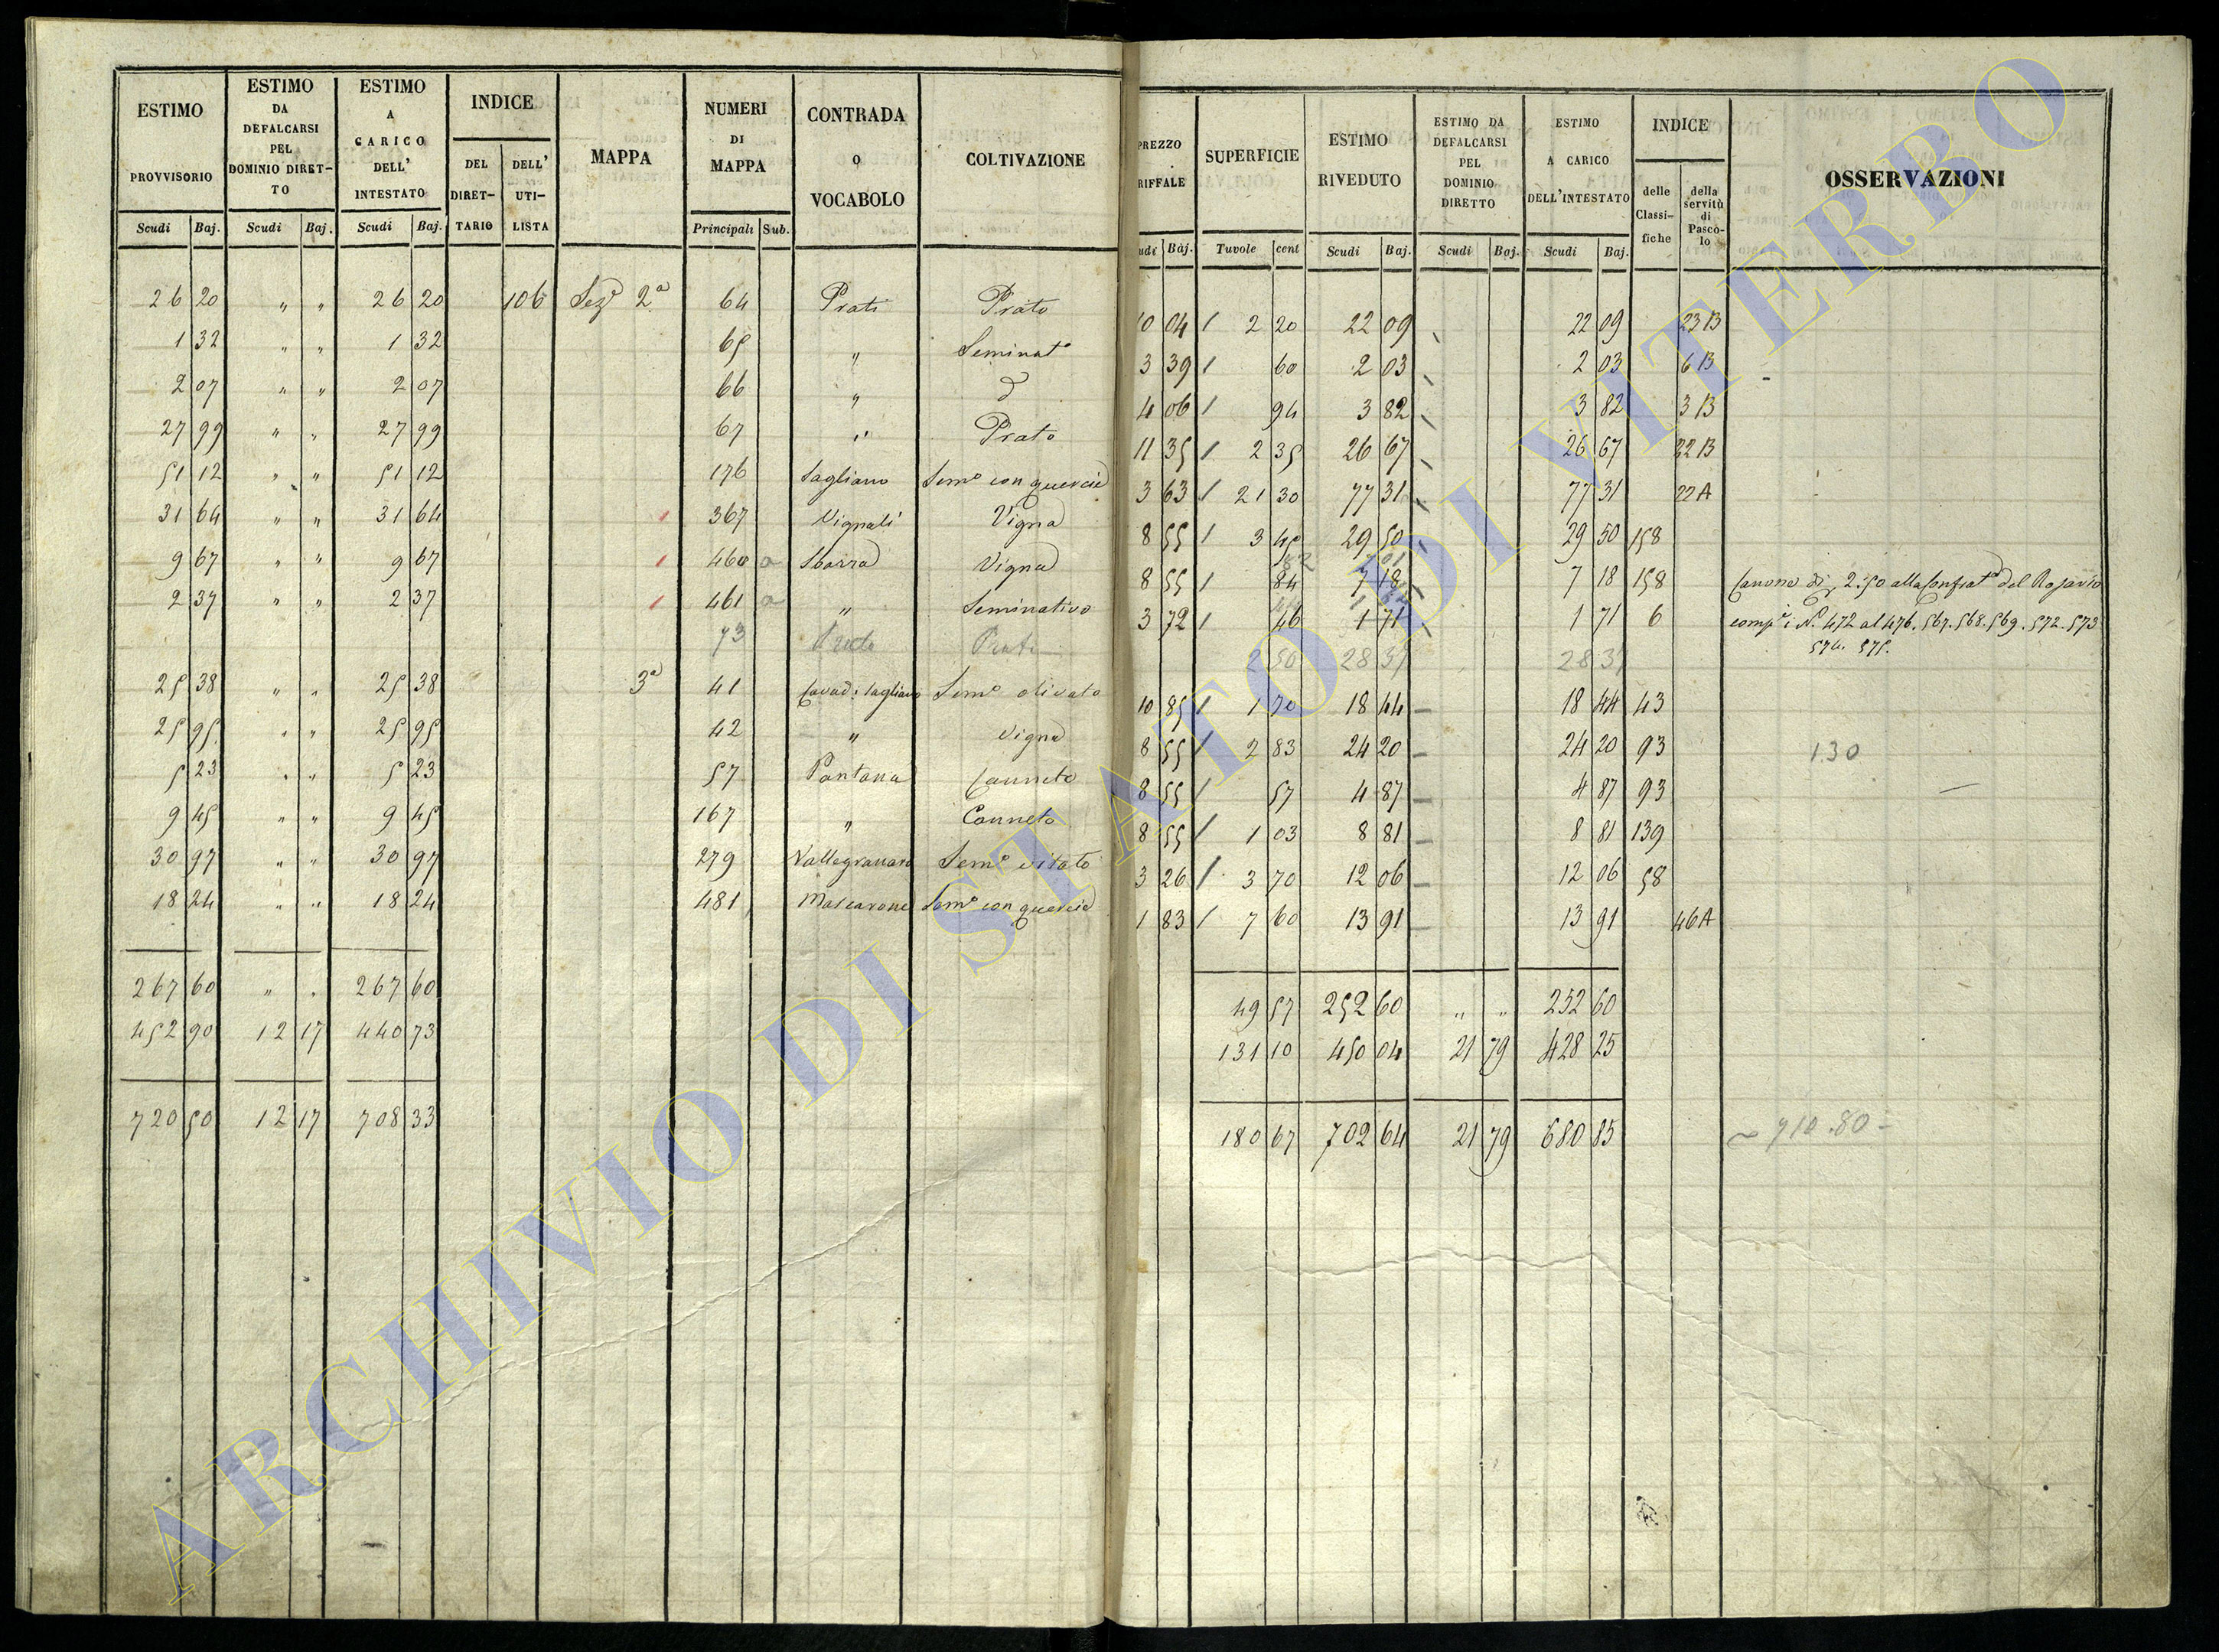 ESTIMO PROVVISORIO
ESTIMO DA DEFALCARSI PEL DOMINIO DIRET-TO
ESTIMO A CARICO DELL' INTESTATO
INDICE
DEL DIRET-TARIO
DELL' UTI-LISTA
MAPPA
NUMERI DI MAPPA
CONTRADA O VOCABOLO
COLTIVAZIONE
Scudi Baj. Scudi Baj. Scudi Baj. Principali Sub.
26 20 " " 26 20 106 Sezᵉ 2ª 64 Prati Prato
1 32 " " 1 32 65 " Seminatº
2 07 " " 2 07 66 " d
27 99 " " 27 99 67 " Prato
51 12 " " 51 12 176 Sagliano Semº con quercie
31 64 " " 31 64 1 367 Vignali Vigna
9 67 " " 9 67 1 460 a Sbarra Vigna
2 37 " " 2 37 1 461 a " Seminativo
73 Prato
25 38 " " 25 38 3ª 41 Sagliano Semº olivato
25 95 " " 25 95 42 " Vigna
5 23 " " 5 23 57 Pantana Canneto
9 45 " " 9 45 167 " Canneto
30 97 " " 30 97 279 Vallegranara Semº vitato
18 24 " " 18 24 481 Mascarone Semº con quercie
267 60 " " 267 60
452 90 12 17 440 73
720 50 12 17 708 33
PREZZO RIFFALE
SUPERFICIE
ESTIMO RIVEDUTO
ESTIMO DA DEFALCARSI PEL DOMINIO DIRETTO
ESTIMO A CARICO DELL'INTESTATO
INDICE
delle Classi-fiche
della servitù di Pasco-lo
OSSERVAZIONI
udi Baj. Tavole cent Scudi Baj. Scudi Baj. Scudi Baj.
10 04 / 2 20 22 09 22 09 23 B
3 39 / 60 2 03 2 03 6 B
4 06 / 94 3 82 3 82 3 B
11 35 / 2 35 26 67 26 67 22 B
3 63 / 21 30 77 31 77 31 22 A
8 55 / 3 45 29 50 29 50 158
8 55 / 84 7 18 7 18 158 Canone di 2:50 alla Confratª del Rosario
3 72 / 46 1 71 1 71 6 compⁱ i Nº 472 al 476. 567. 568. 569. 572. 573
574. 575.
2 50 28 37 28 37
10 85 / 1 70 18 44 18 44 43
8 55 / 2 83 24 20 24 20 93 130
8 55 / 57 4 87 4 87 93
8 55 / 1 03 8 81 8 81 139
3 26 / 3 70 12 06 12 06 58
1 83 / 7 60 13 91 13 91 46 A
49 57 252 60 " " 252 60
131 10 450 04 21 79 428 25
180 67 702 64 21 79 680 85 710.80
ARCHIVIO DI STATO DI VITERBO